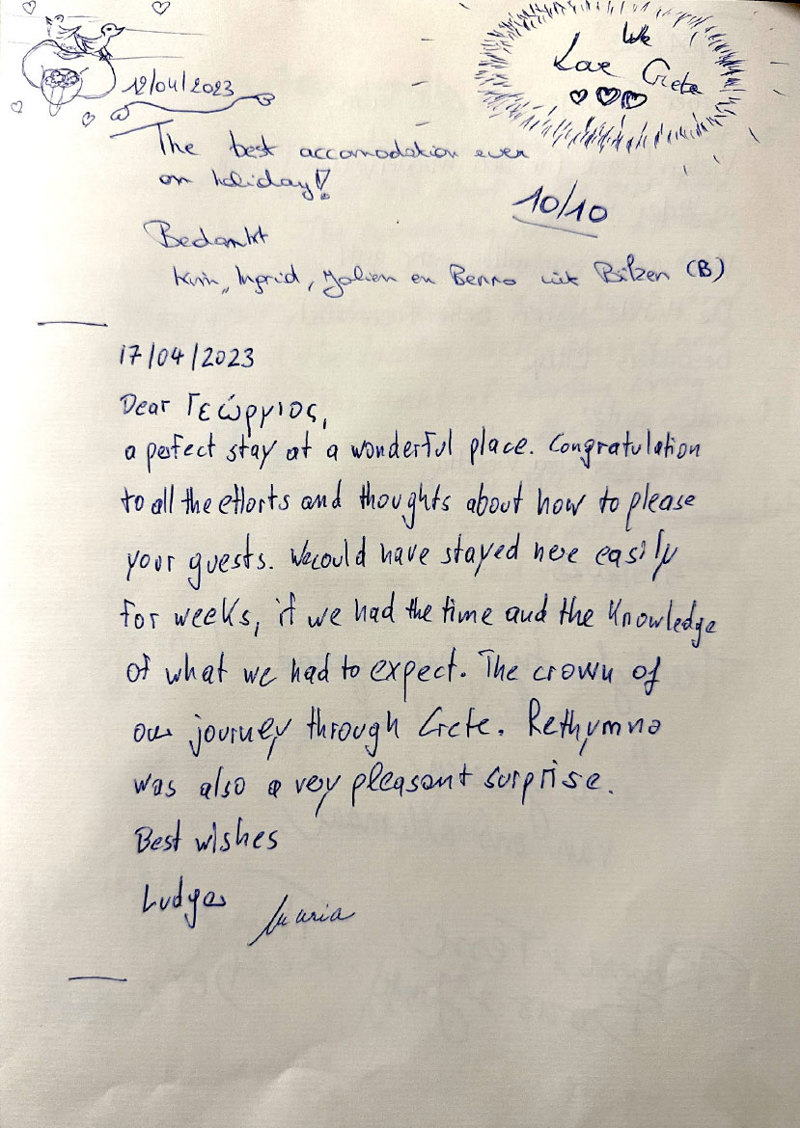 We
Love Crete
12/04/2023
The best accomodation ever
on holiday!
10/10
Bedankt
Ingrid, Jolien en Benno uit Bilzen (B)
17/04/2023
Dear Γεώργιος,
a perfect stay at a wonderful place. Congratulation
to all the efforts and thoughts about how to please
your guests. We could have stayed here easily
for weeks, if we had the time and the knowledge
of what we had to expect. The crown of
our journey through Crete. Rethymno
was also a very pleasant surprise.
Best wishes
Ludger Maria